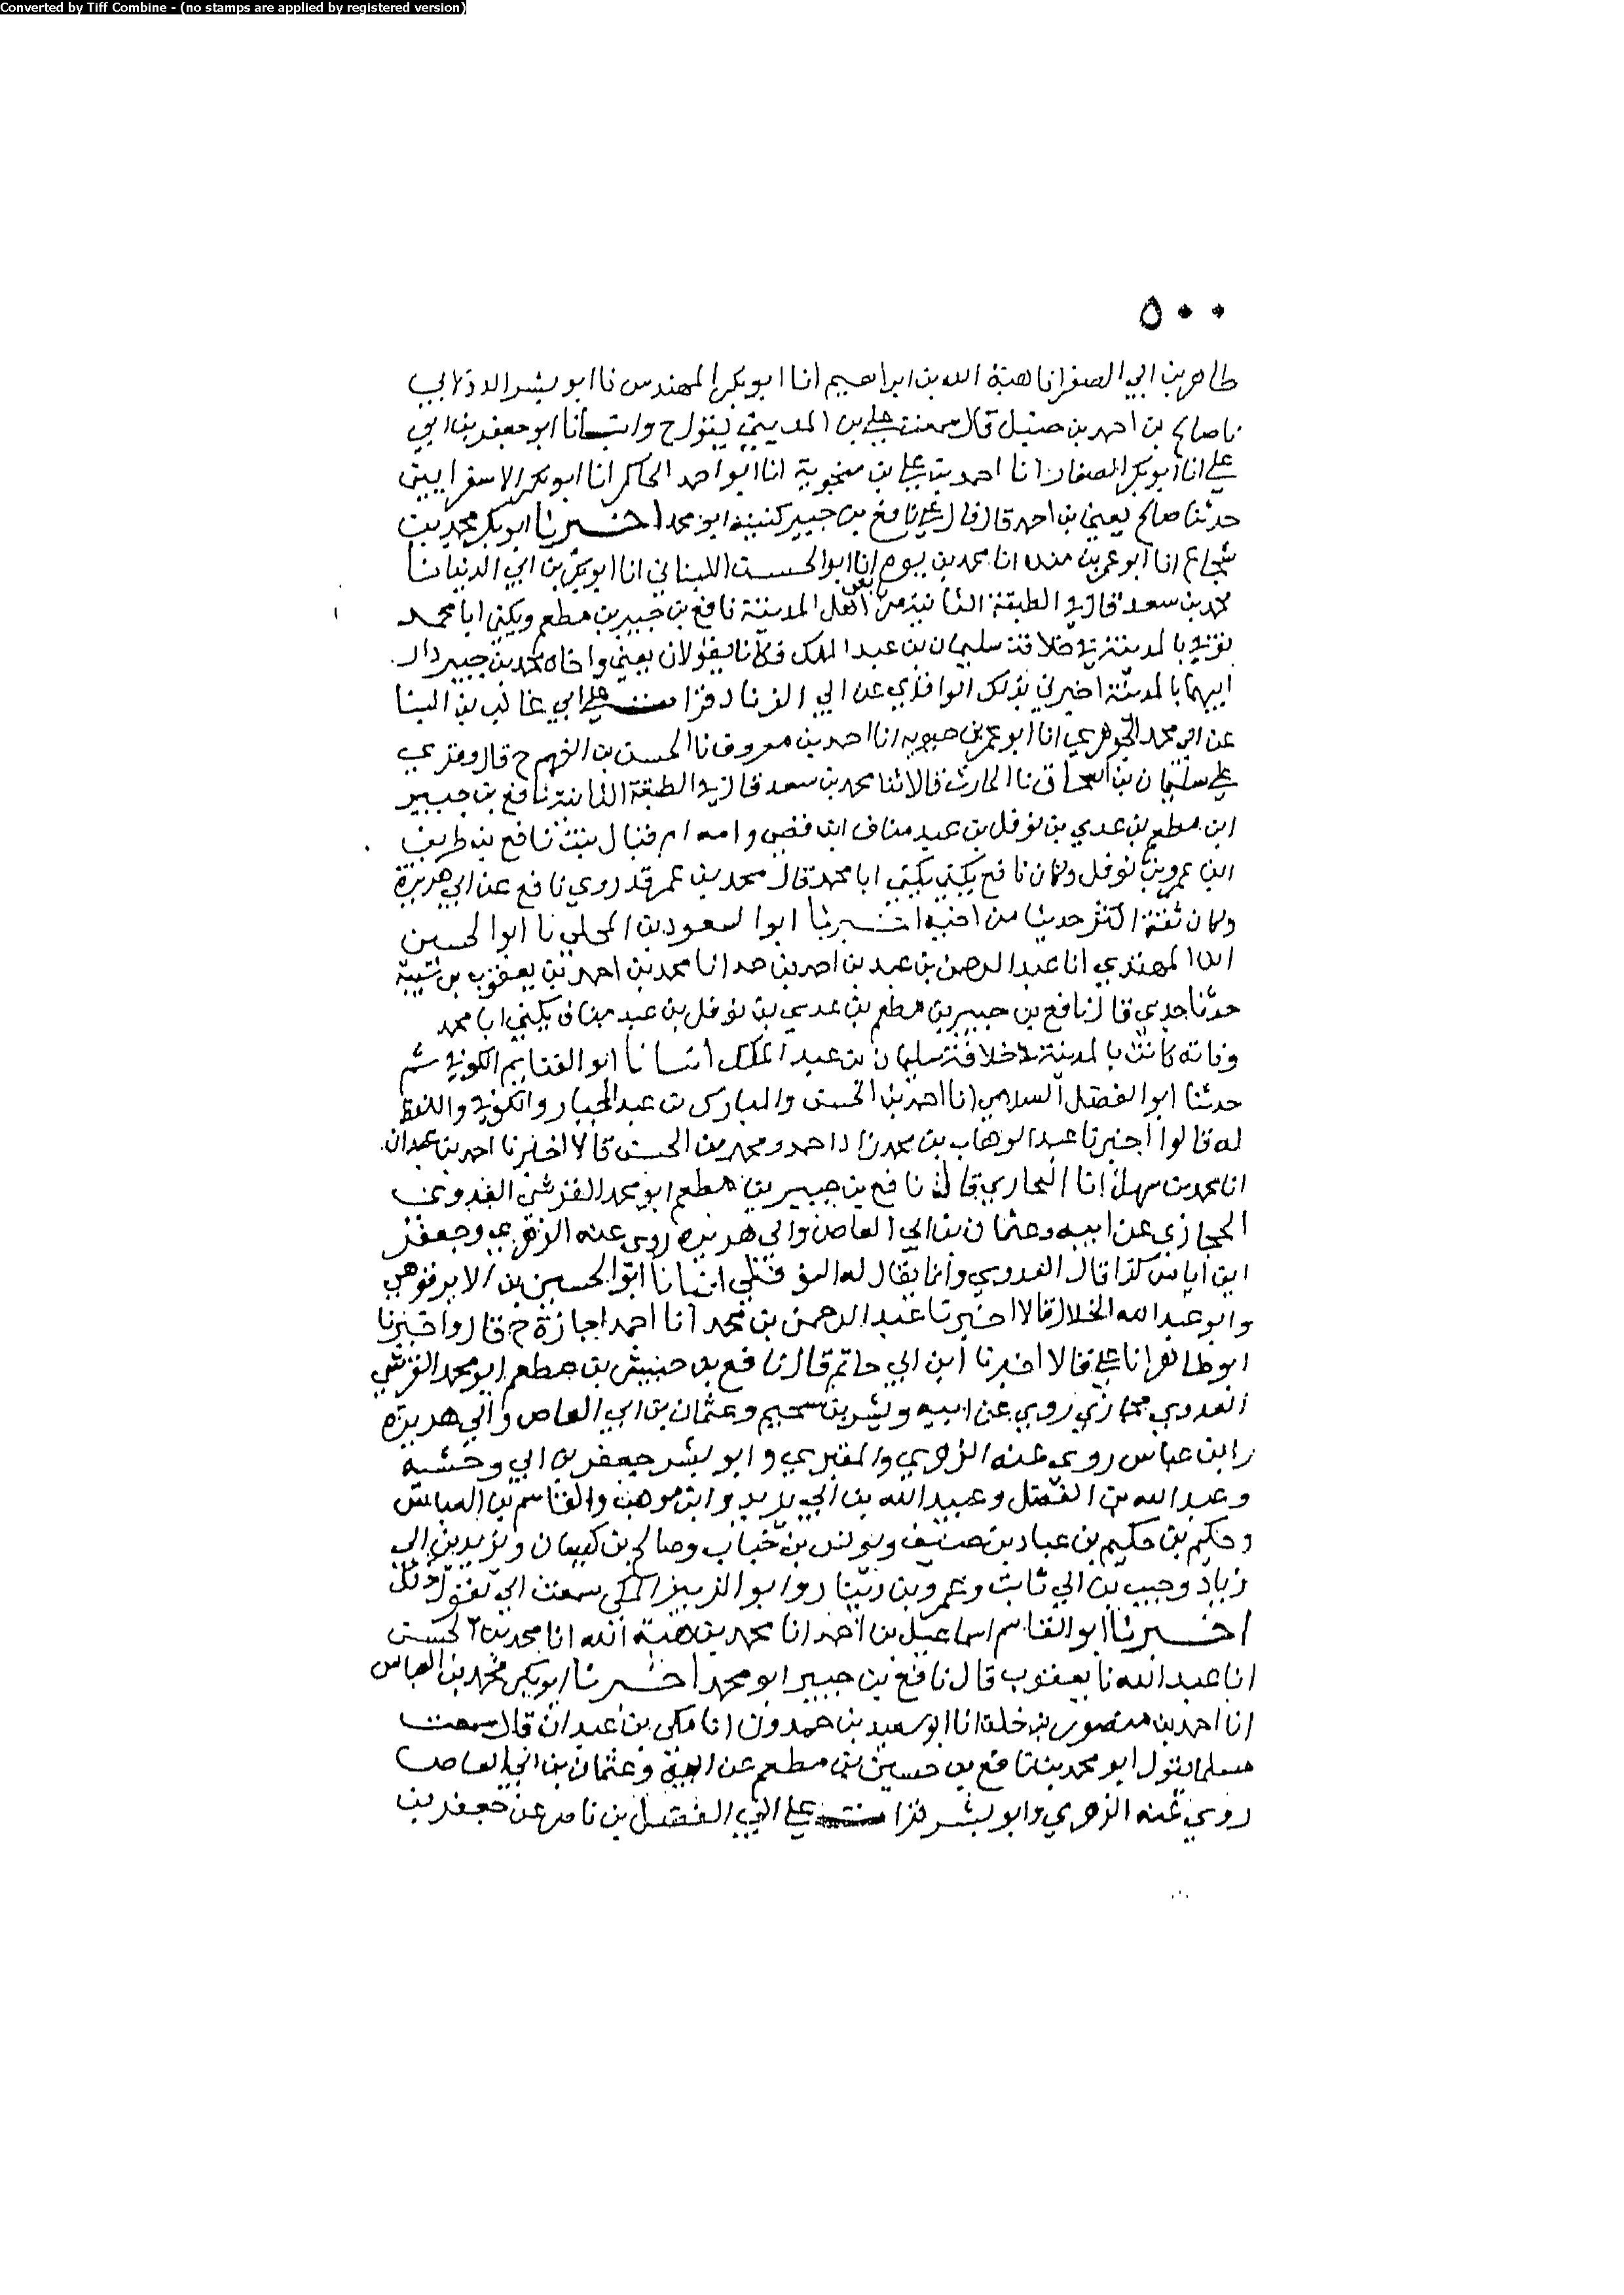 Converted by Tiff Combine - (no stamps are applied by registered version)
٥٠٠
طاهر بن ابي الصقر انا هبة الله بن ابراهيم انا ابو بكر المهندس نا ابو بشر الدولابي
نا صالح بن احمد بن حنبل قال سمعت علي بن المديني يقول ح وانبانا ابو جعفر بن ابي
علي انا ابو بكر الصفار انا احمد بن علي بن منجوية انا ابو احمد الحاكم انا ابو بكر الاسفراييني
حدثنا صالح يعني بن احمد قال قال علي نافع بن جبير كنيته ابو محمد اخبرنا ابو بكر محمد بن
شجاع انا ابو عمرو بن منده انا محمد بن يوه انا ابو الحسن اللبناني انا ابو بكر بن ابي الدنيا نا
محمد بن سعد قال في الطبقة الثانية من اهل المدينة نافع بن جبير بن مطعم ويكنى ابا محمد
توفي بالمدينة في خلافة سليمان بن عبد الملك وكانا يقولان يعني واخاه محمد بن جبير دار
ابيهما بالمدينة اخبرني بذلك الواقدي عن ابي الزناد قرات علي ابي غالب بن البنا
عن ابي محمد الجوهري انا ابو عمر بن حيويه انا احمد بن معروف نا الحسن بن الفهم ح قال وقري
علي سليمان بن اسحاق نا الحارث قالا ثنا محمد بن سعد قال في الطبقة الثانية نافع بن جبير
ابن مطعم بن عدي بن نوفل بن عبد مناف ابن قصي وامه ام قتال بنت نافع بن ظريف
ابن عمرو بن نوفل وكان نافع يكني يكني ابا محمد قال محمد بن عمر قد روي نافع عن ابي هريرة
وكان ثقة اكثر حديثا من اخيه اخبرنا ابو السعود بن المجلي نا ابو الحسين
ابن المهتدي انا عبد الرحمن بن عمر بن احمد بن حمد انا محمد بن احمد بن يعقوب بن شيبة
حدثنا جدي قال نافع بن جبير بن مطعم بن عدي بن نوفل بن عبد مناف يكني ابا محمد
وفاته كانت بالمدينة في خلافة سليمان بن عبد الملك انبانا ابو الغنايم الكوفي ثم
حدثنا ابو الفضل السلامي انا احمد بن الحسن والمبارك بن عبد الجبار والكوفي واللفظ
له قالوا اخبرنا عبد الوهاب بن محمد زاد احمد ومحمد بن الحسن قالا اخبرنا احمد بن عبدان
انا محمد بن سهل انا البخاري قال نافع بن جبير بن مطعم ابو محمد القرشي العدوي
الحجازي عن ابيه وعثمان بن ابي العاص وابي هريرة روى عنه الزهري وجعفر
ابن اياس كذا قال العدوي وانما يقال له النوفلي انبانا ابو الحسين بن الابرقوهي
وابو عبد الله الخلال قالا اخبرنا عبد الرحمن بن محمد انا احمد اجازة ح قال واخبرنا
ابو طاهر انا علي قالا اخبرنا ابن ابي حاتم قال نافع بن جبير بن مطعم ابو محمد القرشي
العدوي حجازي روي عن ابيه وبشر بن سحيم وعثمان بن ابي العاص وابي هريرة
وابن عباس روي عنه الزهري والمقبري وابو بشر جعفر بن ابي وحشية
وعبد الله بن الفضل وعبيد الله بن ابي يزيد وابن موهب والقاسم بن العباس
وحكيم بن حكيم بن عباد بن حنيف ويونس بن خباب وصالح بن كيسان ويزيد بن ابي
زياد وحبيب بن ابي ثابت وعمرو بن دينار وابو الزبير المكي سمعت ابي يقول ذلك
اخبرنا ابو القاسم اسماعيل بن احمد انا محمد بن هبة الله انا محمد بن الحسين
انا عبد الله نا يعقوب قال نافع بن جبير ابو محمد اخبرنا ابو بكر محمد بن العباس
انا احمد بن منصور بن خلف انا ابو سعيد بن حمدون انا مكي بن عبدان قال سمعت
مسلما يقول ابو محمد نافع بن جبير بن مطعم عن ابيه وعثمان بن ابي العاص
روي عنه الزهري وابو بشر قرات علي ابي الفضل بن ناصر عن جعفر بن